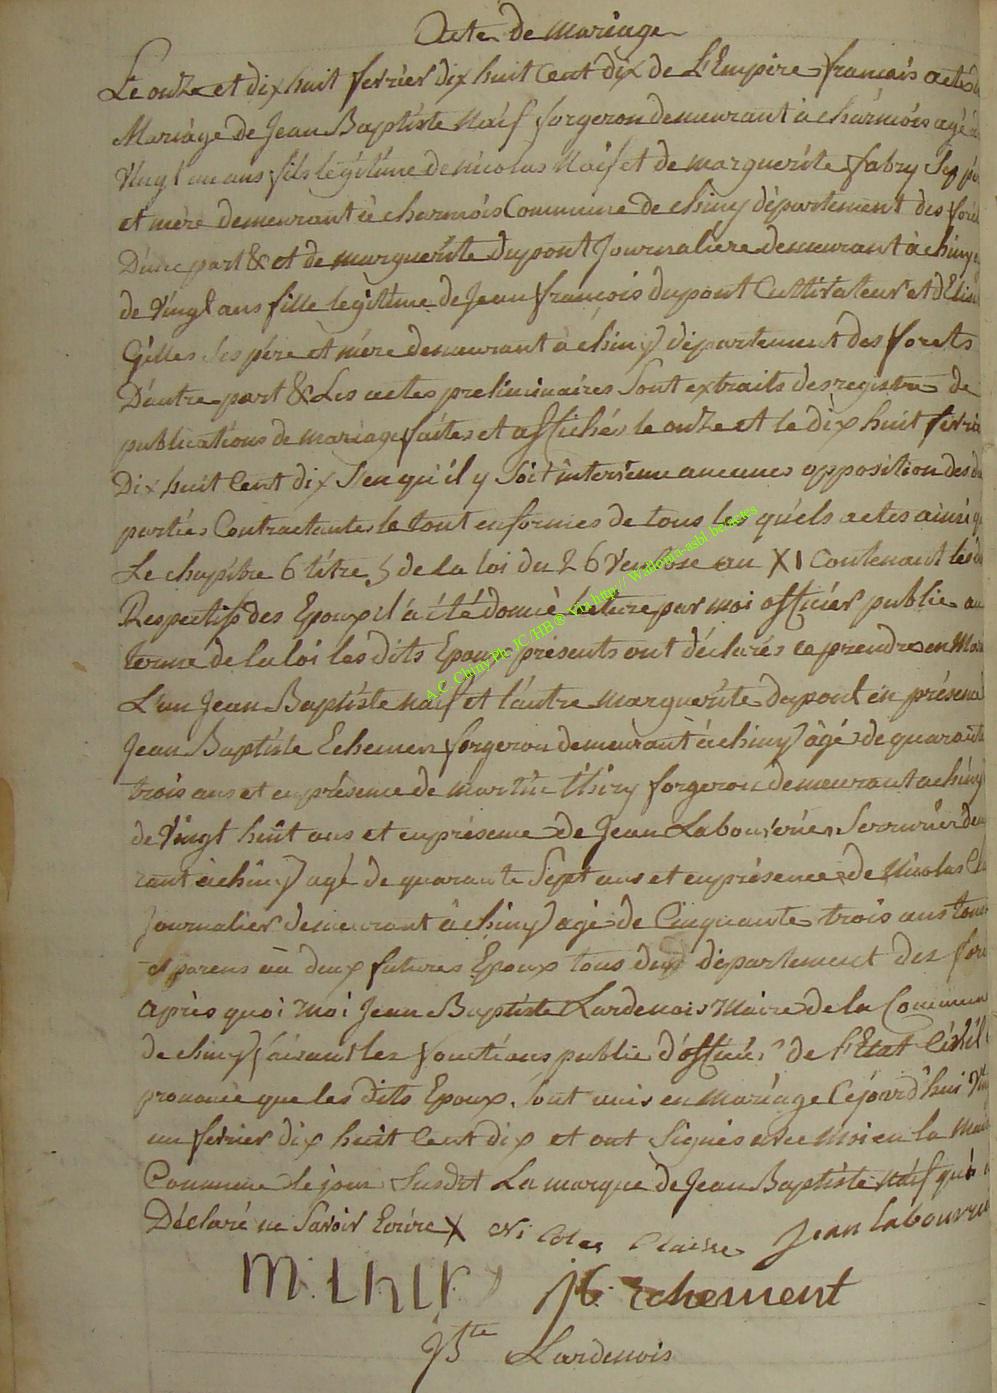 Acte de mariage
Le onze et dix huit fevrier dix huit Cent dix de L'Empire francais acte d
Mariàge de Jean Baptiste Naif forgeron demeurant à charmois agé d
Vingt un ans fils legitime de nicolas Naif et de marguerite fabry Ses pè
et mère demeurant à charmois Commune de chiny département des forê
D'une part & et de marguerite dupont Journaliere demeurant à chiny
de Vingt ans fille legitime de Jean françois dupont Cultivateur et d'Elis
Gilles Ses père et mère demeurant à chiny département des forets
D'autre part & Les actes preliminaires Sont extraits des registre de
publications de mariage faites et affichés le onze et le dix huit fevrie
Dix huit Cent dix S'en qu'il y Soit intervenu aucunes opposition des d
parties Contractantes le tout en formes de tous les quels actes ainsi q
Le chapitre 6 titre 5 de la loi du 26 Ventose an XI Contenant les d
Respectifs des Epoux il a été donné lecture par moi officier public au
terme de la loi les dits Epoux présents ont déclarés se prendre en Ma
L'un Jean Baptiste naif et l'autre marguerite dupont en présence
Jean Baptiste Echemen forgeron demeurant à chiny âgé de quarante
trois ans et en présence de martin thiry forgeron demeurant a chiny
de Vingt huit ans et en présence de Jean Labouverie Serrurier deme
rant à chiny agé de quarante Sept ans et en présence de Nicolas Cl
Journalier demeurant à chiny agé de Cinquante trois ans tous
et parens au deux futures Epoux tous du département des for
après quoi moi Jean Baptiste Lardenois Maire de la Commun
de chiny faisant les fonctions public d'officier de l'Etat Civil
prononcé que les dits Epoux Sont unis en mariage Cejourd'hui Vin
un fevrier dix huit Cent dix et ont Signés avec Moi en la Mai
Commune le jour Susdit La marque de Jean Baptiste naif qui
Déclaré ne Savoir Ecrire X Nicolas Claisse Jean labouverie
M. thiry JB. Echement
JBte Lardenois
A.C. Chiny Ph. JC/HB ® Via http://Wallonia-asbl.be/actes